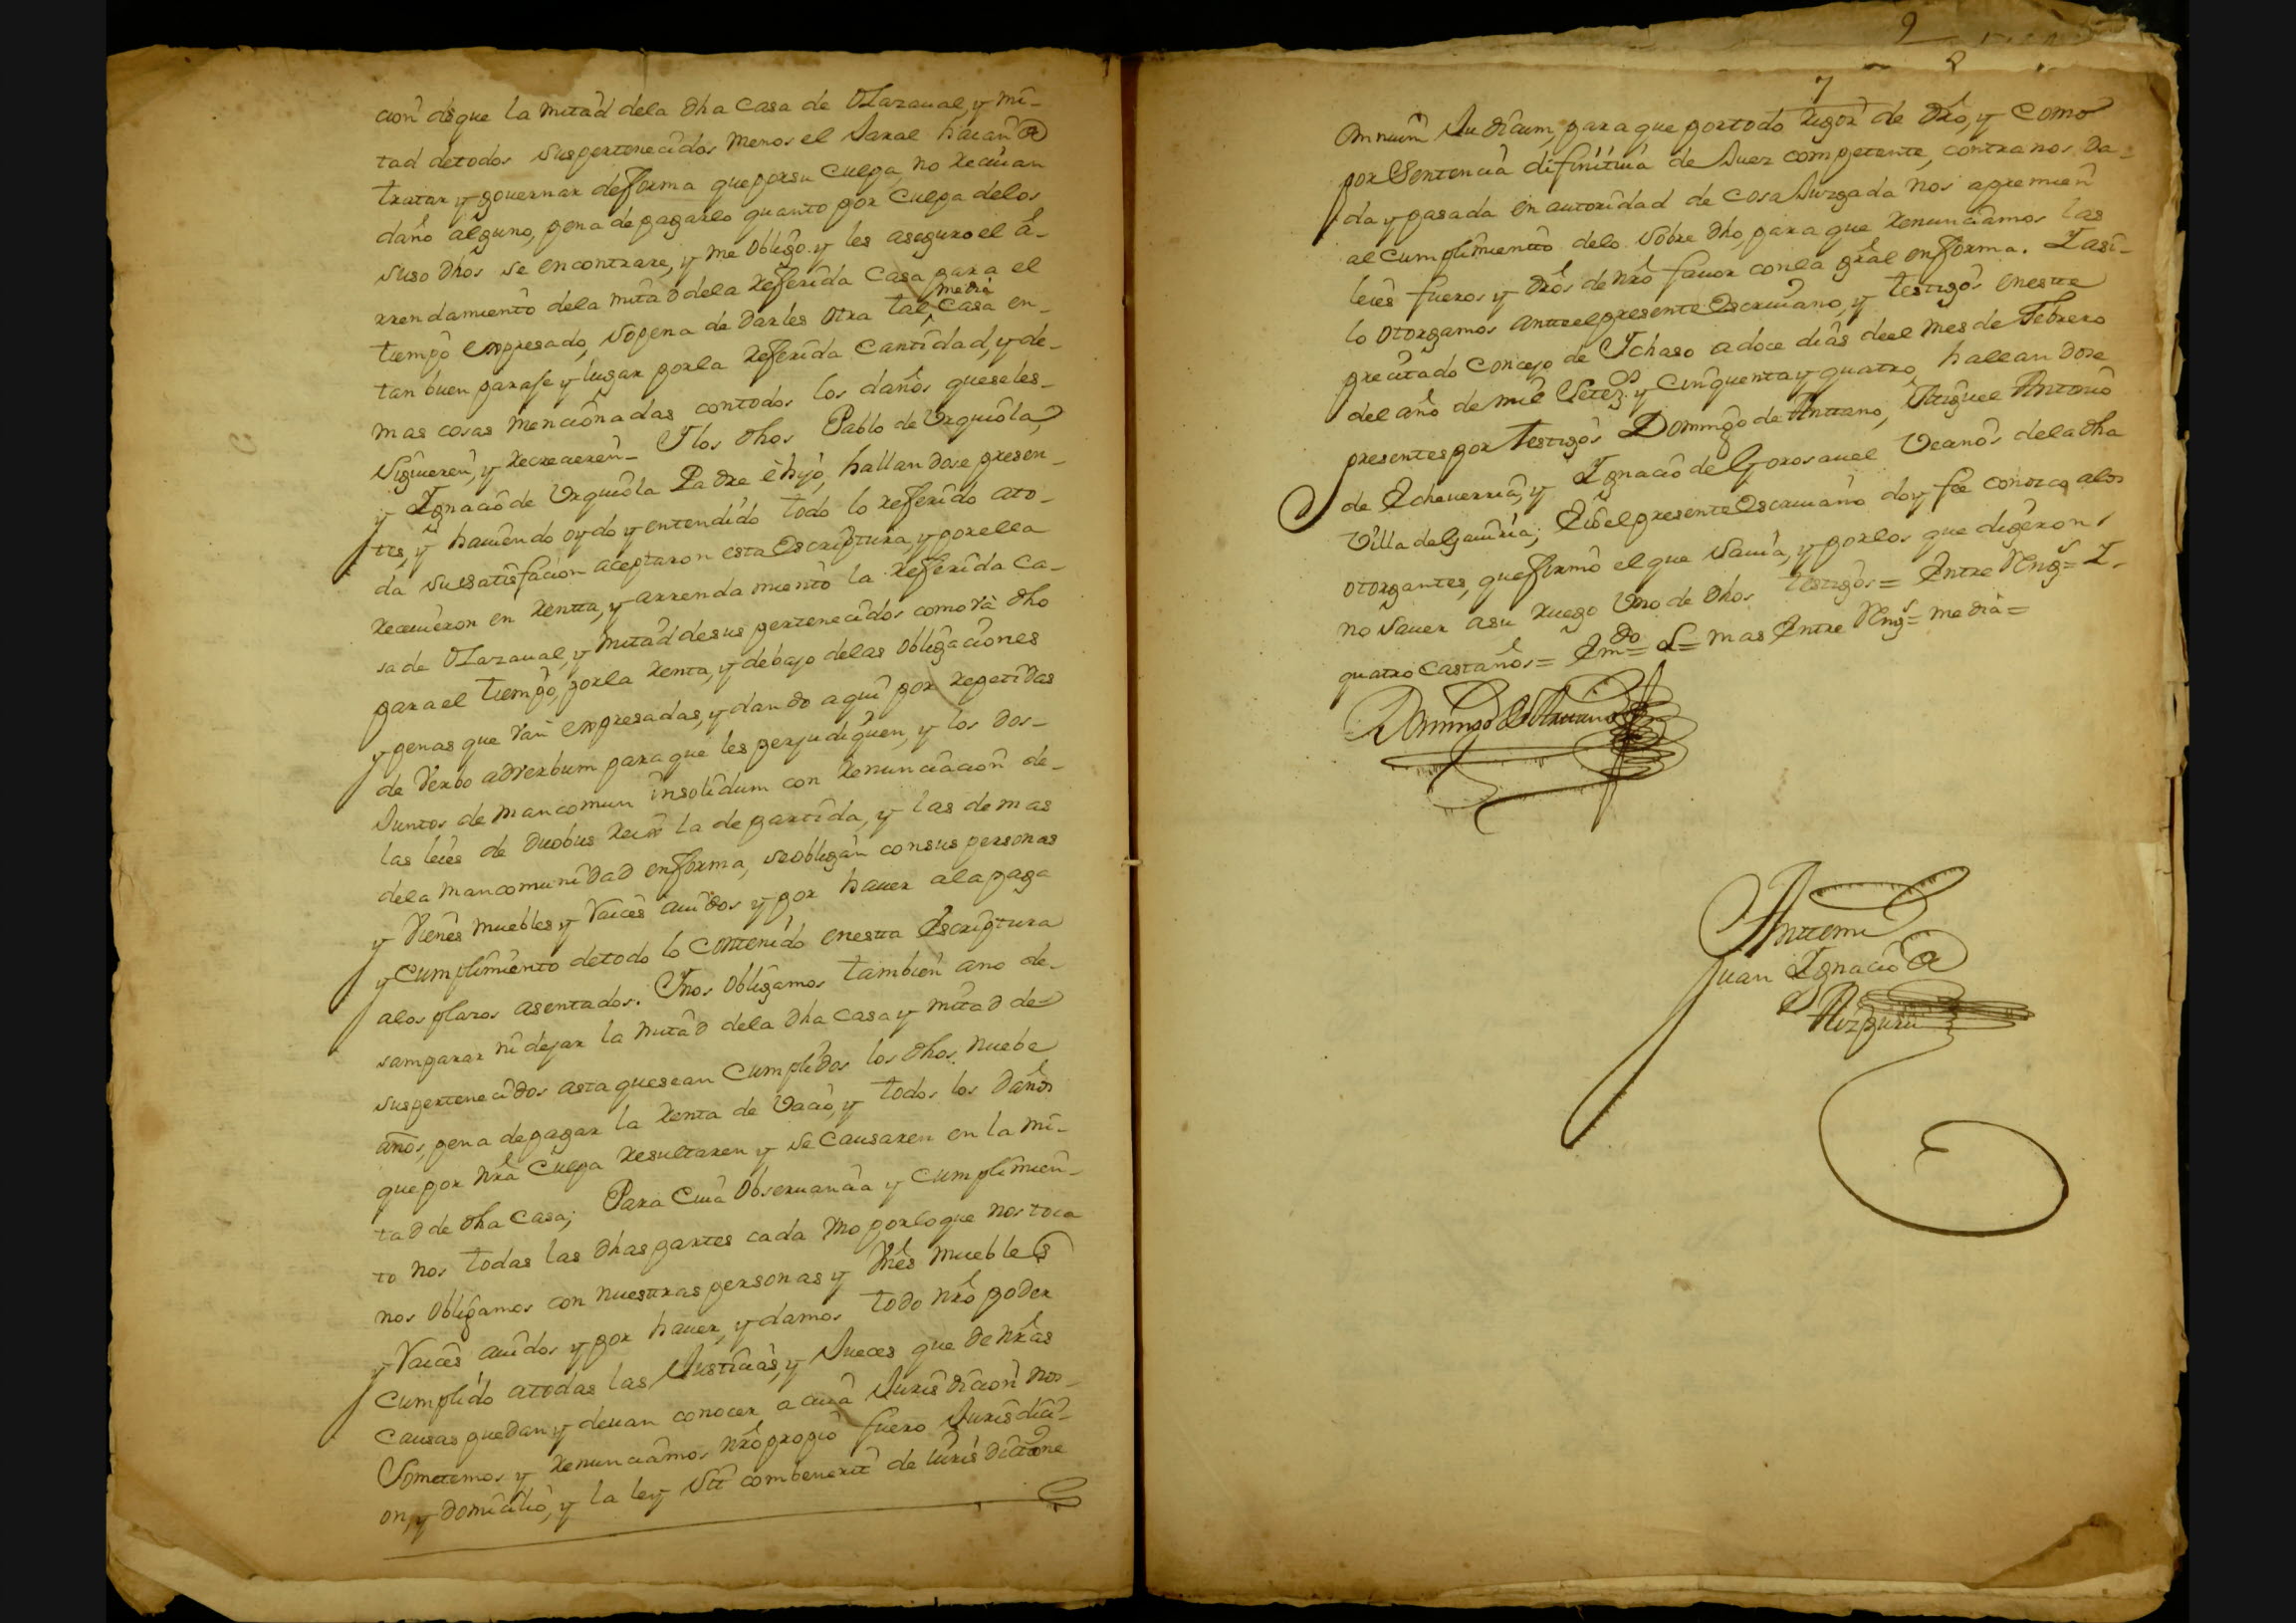 cion de que la mitad dela dha casa de OLarzaual, y mi-
tad detodos sus pertenecidos menos el Jaral haian de
tratar y gouernar defforma que porsu culpa no reciuan
daño alguno, pena de pagarlo quanto por culpa delos
suso dhos se encontrare, y me obligo y les aseguro el a-
rrendamiento dela mitad dela refferida Casa para el
tiempo expresado, so pena de darles otra tal media Casa en-
tan buen paraje y lugar porla refferida cantidad, y de-
mas cosas mencionadas contodos los daños queseles-
siguieren, y recrecieren- Ylos dhos Pablo de Vrquiola,
y Ignacio de Vrquiola Padre è hijo, hallandose presen-
tes, y hauiendo oydo y entendido todo lo refferido ato-
da su satisfacion aceptaron esta Escriptura, y porella
reciuieron en rentta, y arrendamiento la refferida ca-
sa de OLarzaual, y mitad desus pertenecidos como và dho
parael tiempo, porla renta, y debajo delas obligaciones
y penas que vàn expresadas, y dando aqui por repetidas
de Verbo adverbum paraque les perjudiquen, y los dos-
Juntos de mancomun insolidum con renunciacion de-
las leies de duobus reis la de partida, y las demas
dela mancomunidad enfforma, se obligàn consus personas
y Vienes muebles y raices auidos y por hauer ala paga
y Cumplimiento detodo lo contenido enestta Escriptura
alos plazos asentados. Ynos obligamos tambien ano de-
samparar ni dejar la mitad dela dha casa y mitad de
suspertenecidos asta quesean Cumplidos los dhos nuebe
años, pena depagar la renta de vacio, y todos los daños
que por nrã culpa resultaren y se causaren en la mi-
tad de dha Casa; Para Cuia observancia y cumplimien-
to nos todas las dhas partes cada vno porloque nos toca
nos obligamos con nuesttras personas y Vnẽs muebles
y raices auidos y por hauer, y damos todo nrõ poder
Cumplido atodas las Justicias, y Jueces que de nrãs
causas puedan y deuan conocer a cuia Jurisdicion nos-
Sometemos y renunciamos nrõ propio fuero Jurisdici-
on, y domicilio, y la ley Sit combenerit de iurisdictione
7
Omnium Judicum, para que portodo rigor de drõ, y como
por Sentencia difinitiua de Juez competente, contra nos da-
da y pasada en autoridad de cosa Juzgada nos apremien
al cumplimientto delo sobre dho, para que renunciamos las
leies fueros y drõs de nrõ fauor conla grãl enfforma. Iasi-
lo otorgamos antteelpresente Escriuano, y testigos enestte
precitado Concejo de Ichaso adoce dias deel mes de Febrero
del año de mil Setez.ᵒˢ y Cinquenta y quatro, hallandose
presentes por testigos Domingo de Anttano, Miguel Antonio
de Echeuerria, y Ignacio de Gorosauel Vecinos dela dha
Villa deGauiria; Eio elpresente Escriuano doy fee conozco alos
otorgantes, quefirmò el que sauia, y porlos que digeron
no sauer asu ruego vno de dhos testigos= Entre Rengˢ= I-
quatro castaños= Emᵈᵒ= L= mas Entre Rengˢ= media=
Domingo de Anttano
Anttemi
Juan Ignacio de
Aizpuru